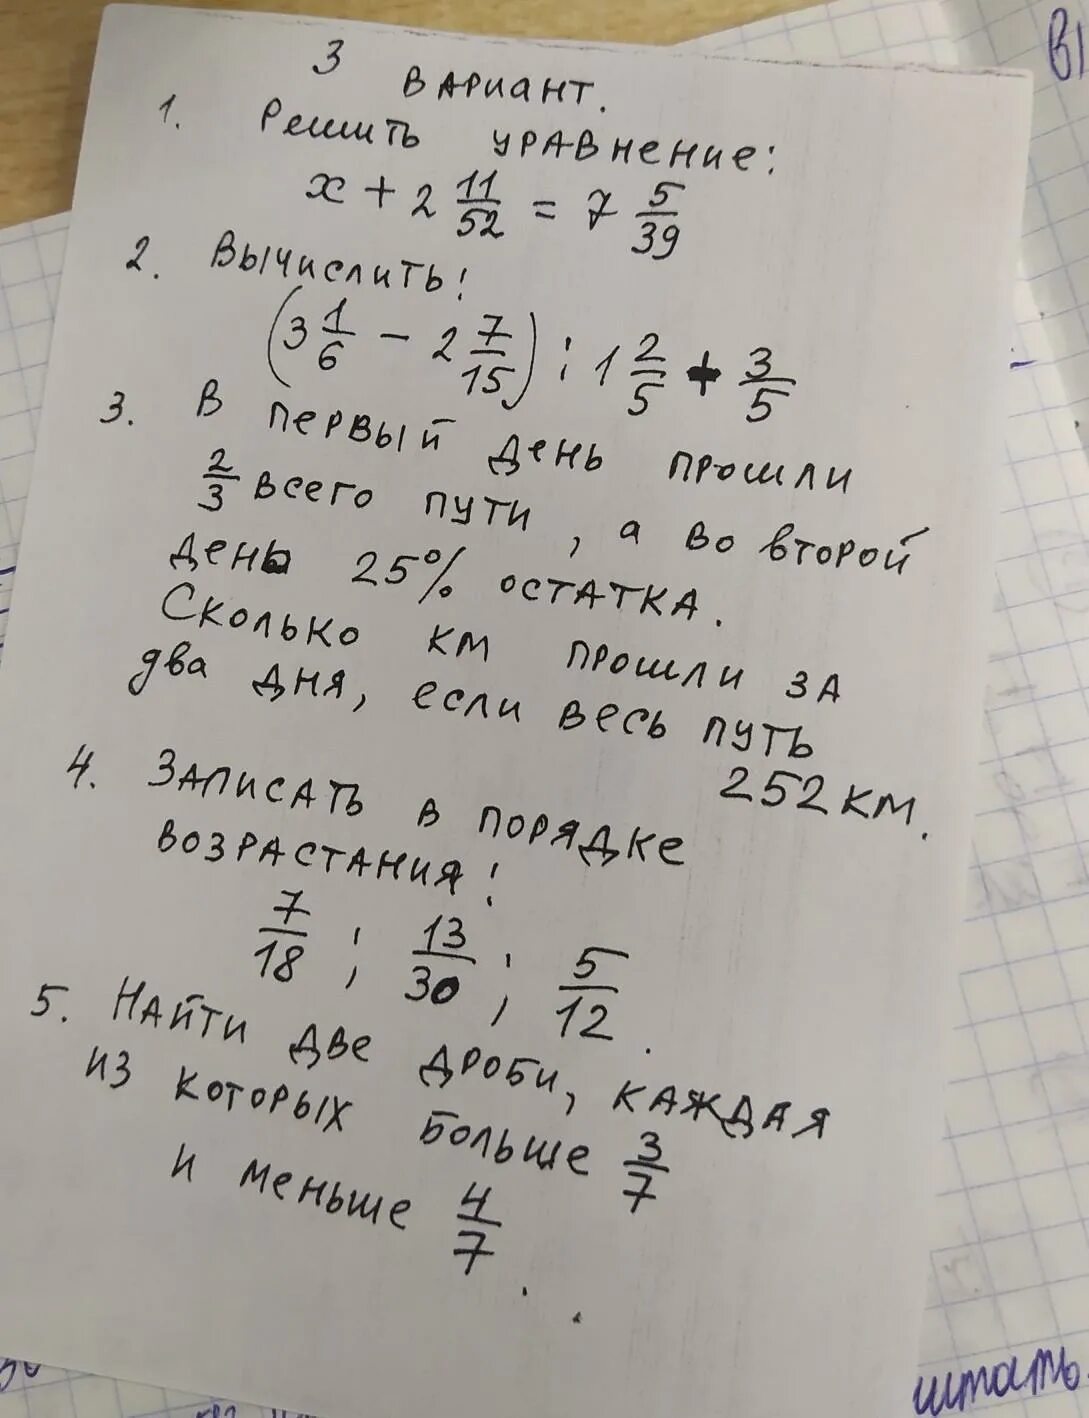 3 ВАРИАНТ.
1. Решить уравнение:
x + 2 11/52 = 7 5/39
2. Вычислить:
(3 1/6 - 2 7/15) : 1 2/5 + 3/5
3. В первый день прошли
2/3 всего пути, а во второй
день 25% остатка.
Сколько км прошли за
два дня, если весь путь
252 км.
4. Записать в порядке
возрастания:
7/18 ; 13/30 ; 5/12.
5. Найти две дроби, каждая
из которых больше 3/7
и меньше 4/7.
штать